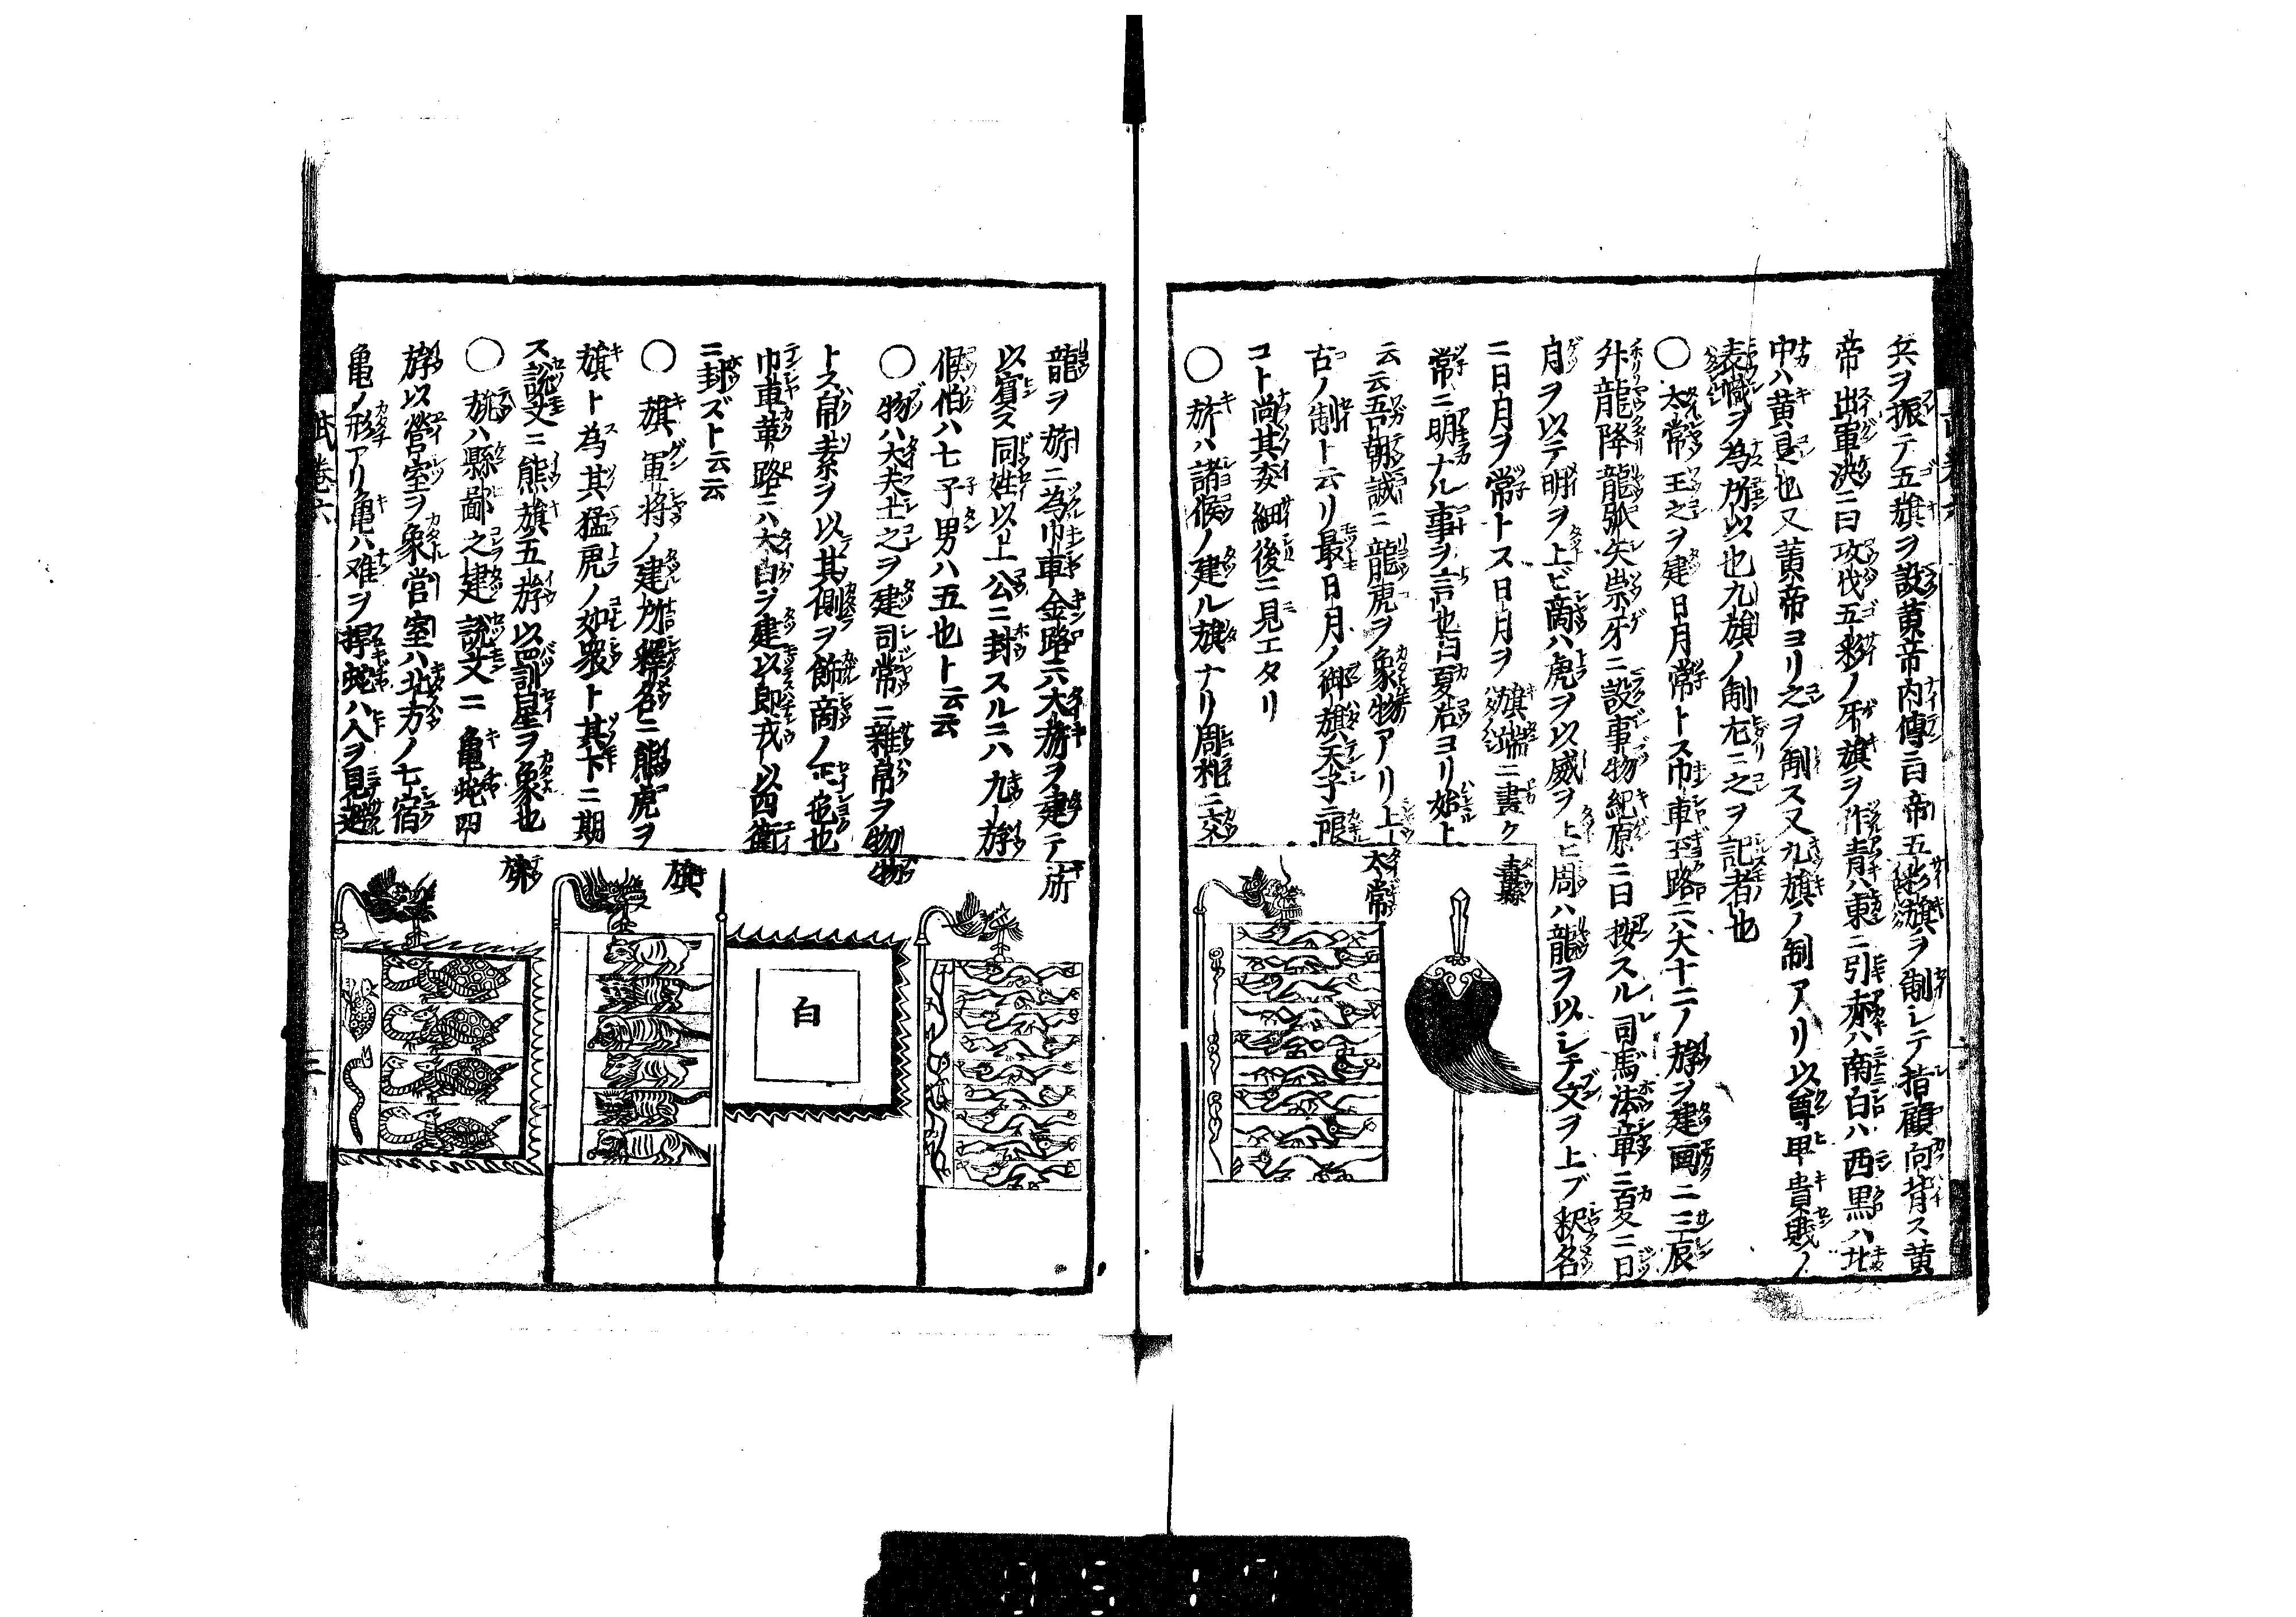 兵ヲ振テ五旗ヲ設黄帝内傳ニ曰帝五彩旗ヲ制シテ指顧向背ス黄
帝出軍決ニ曰攻伐五彩ノ牙旗ヲ作青ハ東ニ引赤ハ南白ハ西黒ハ北
中ハ黄是也又黄帝ヨリ之ヲ制ス又九旗ノ制アリ以尊卑貴賎ノ
表幟ヲ為所以也九旗ノ制左ニ之ヲ記者也
○太常王之ヲ建日月常トス巾車玉路ニハ大十二ノ斿ヲ建画ニ三辰
外龍降龍弧矢崇牙ニ設事物紀原ニ曰按スル司馬法章ニ夏ニ日
月ヲ以テ明ヲ上ビ商ハ虎ヲ以威ヲ上ヒ周ハ龍ヲ以シテ文ヲ上ブ釈名
ニ日月ヲ常トス日月ヲ旗端ニ畫ク
常ニ明ナル事ヲ言也曰夏后ヨリ始ト
云云吾朝誠ニ龍虎ヲ象物アリ上
古ノ制ト云リ最日月ノ御旗ハ天子ニ限
コト尚其委細後ニ見エタリ
○旂ハ諸侯ノ建ル旗ナリ周礼ニ交
太常
龍ヲ旂ニ為巾車金路ニ六大旂ヲ建テ
以賓ス同姓以上公ニ封スルニハ九斿
侯伯ハ七子男ハ五也ト云云
○物ハ大夫士之ヲ建司常ニ雑帛ヲ物
トス帛素ヲ以其側ヲ飾商ノ正色也
巾車革路ニハ大白ヲ建以即戎以四衛
ニ封ズト云云
○旗軍将ノ建所釋名ニ熊虎ヲ
旗ト為其猛虎ノ如衆ト其下ニ期
ス説文ニ熊旗五斿以罰星ヲ象也
○旐ハ縣鄙之建説文ニ亀蛇四
斿以營室ヲ象営室ハ北方ノ七宿
亀ノ形アリ亀ハ难ヲ捍蛇ハ人ヲ見避
旂
物
白
旗
旐
武巻六